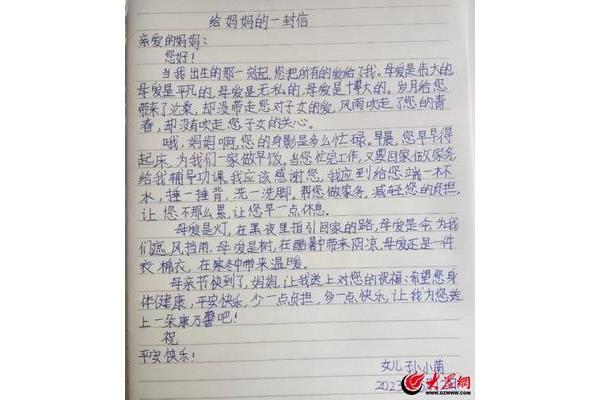 给妈妈的一封信
亲爱的妈妈:
您好!
当我出生的那一刻起,您把所有的爱给了我。母爱是伟大的,
母爱是平凡的,母爱是无私的,母爱是博大的。岁月给您
带来了沧桑,却没带走您对子女的爱,风雨吹走了您的青
春,却没有吹走您子女的关心。
哦,妈妈啊,您的身影是多么忙碌。早晨,您早早得
起床,为我们一家做早饭。当您忙完工作,又要回家做家务,
给我辅导功课,我应该感谢您,我应到给您端一杯
水,捶一捶背,洗一洗脚。帮您做家务,减轻您的负担,
让您不那么累,让您早一点休息。
母爱是灯,在黑夜里指引回家的路,母爱是伞,为我
们遮风挡雨,母爱是树,在酷暑中带来阴凉,母爱还是一件
衣棉衣,在寒冬中带来温暖。
母亲节快到了,妈妈,让我送上对您的祝福:希望您身
体健康,平安快乐,少一点负担,多一点快乐,让我为您送
上一朵康乃馨吧!
祝
平安快乐!
女儿孙小茜
2023
大众网
WWW.DZWWW.COM